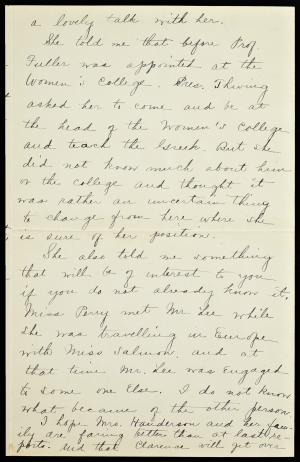 a lovely talk with her.
She told me that before Prof.
Fuller was appointed at the
Women's College. Pres. Thwing
asked her to come and be at
the head of the Women's College
and teach the Greek. But she
did not know much about him
or the college and thought it
was rather an uncertain thing
to change from here where she
is sure of her position.
She also told me something
that will be of interest to you
if you do not already know it.
Miss Perry met Mr. Lee while
she was travelling in Europe
with Miss Salmon. and at
that time Mr. Lee was engaged
to some one else. I do not know
what became of the other person.
I hope Mrs. Handerson and her fam-
ily are faring better than at last re-
ports. And that Clarence will get over